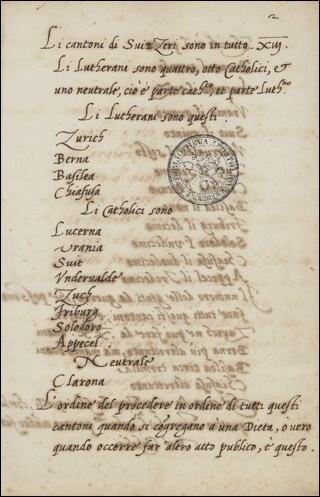 2
Li cantoni di Suizzeri sono in tutto XIIJ.
Li Lutherani sono quattro, otto Catholici, et
uno neutrale, ciò è parte cath.ci, et parte Luth.ni
Li Lutherani sono questi.
Zurich
Berna
Basilea
Chiafusa
Li Catholici sono
Lucerna
Urania
Suit
Undervalde
Zuch
Friburg
Solodoro
Appecel
Neutrale
Clarona
L'ordine del procedere in ordine di tutti questi
cantoni quando si cogregano a una Dieta, o vero
quando occorre far altro atto publico, è questo.